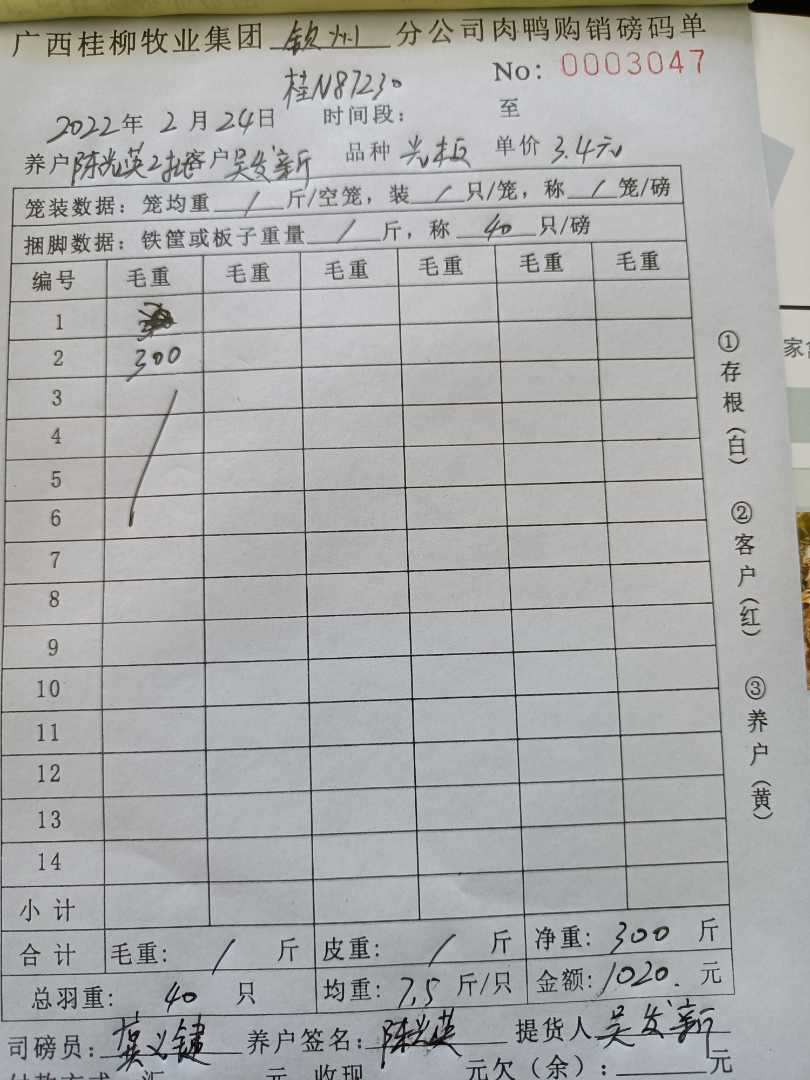 广西桂柳牧业集团 钦州 分公司肉鸭购销磅码单
桂N87230 No：0003047
2022年 2月 24日 时间段： 至
养户 陈光英2批 客户 吴发新 品种 光板 单价 3.4元
笼装数据：笼均重 / 斤/空笼，装 / 只/笼，称 / 笼/磅
捆脚数据：铁筐或板子重量 / 斤，称 40 只/磅
编号 毛重 毛重 毛重 毛重 毛重 毛重
1
2 300
3
4
5
6
7
8
9
10
11
12
13
14
小计
合计 毛重： / 斤 皮重： / 斤 净重：300 斤
总羽重： 40 只 均重：7.5 斤/只 金额：1020. 元
司磅员： 养户签名：陈光英 提货人 吴发新
付款方式 汇 元 收现 元欠（余）： 元
①存根（白）
②客户（红）
③养户（黄）
家